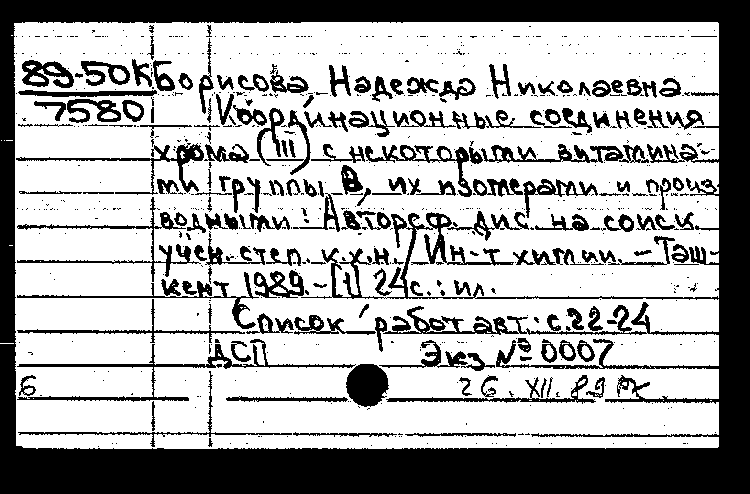 89-50К Борисова, Надежда Николаевна
7580 Координационные соединения
хрома (III) с некоторыми витамина-
ми группы В, их изомерами и произ-
водными : Автореф. дис. на соиск.
учен. степ. к.х.н. / Ин-т химии. - Таш-
кент, 1989. - [1] 24 с. : ил.
Список работ авт.: с. 22-24
ДСП Экз № 0007
6 26. XII. 89